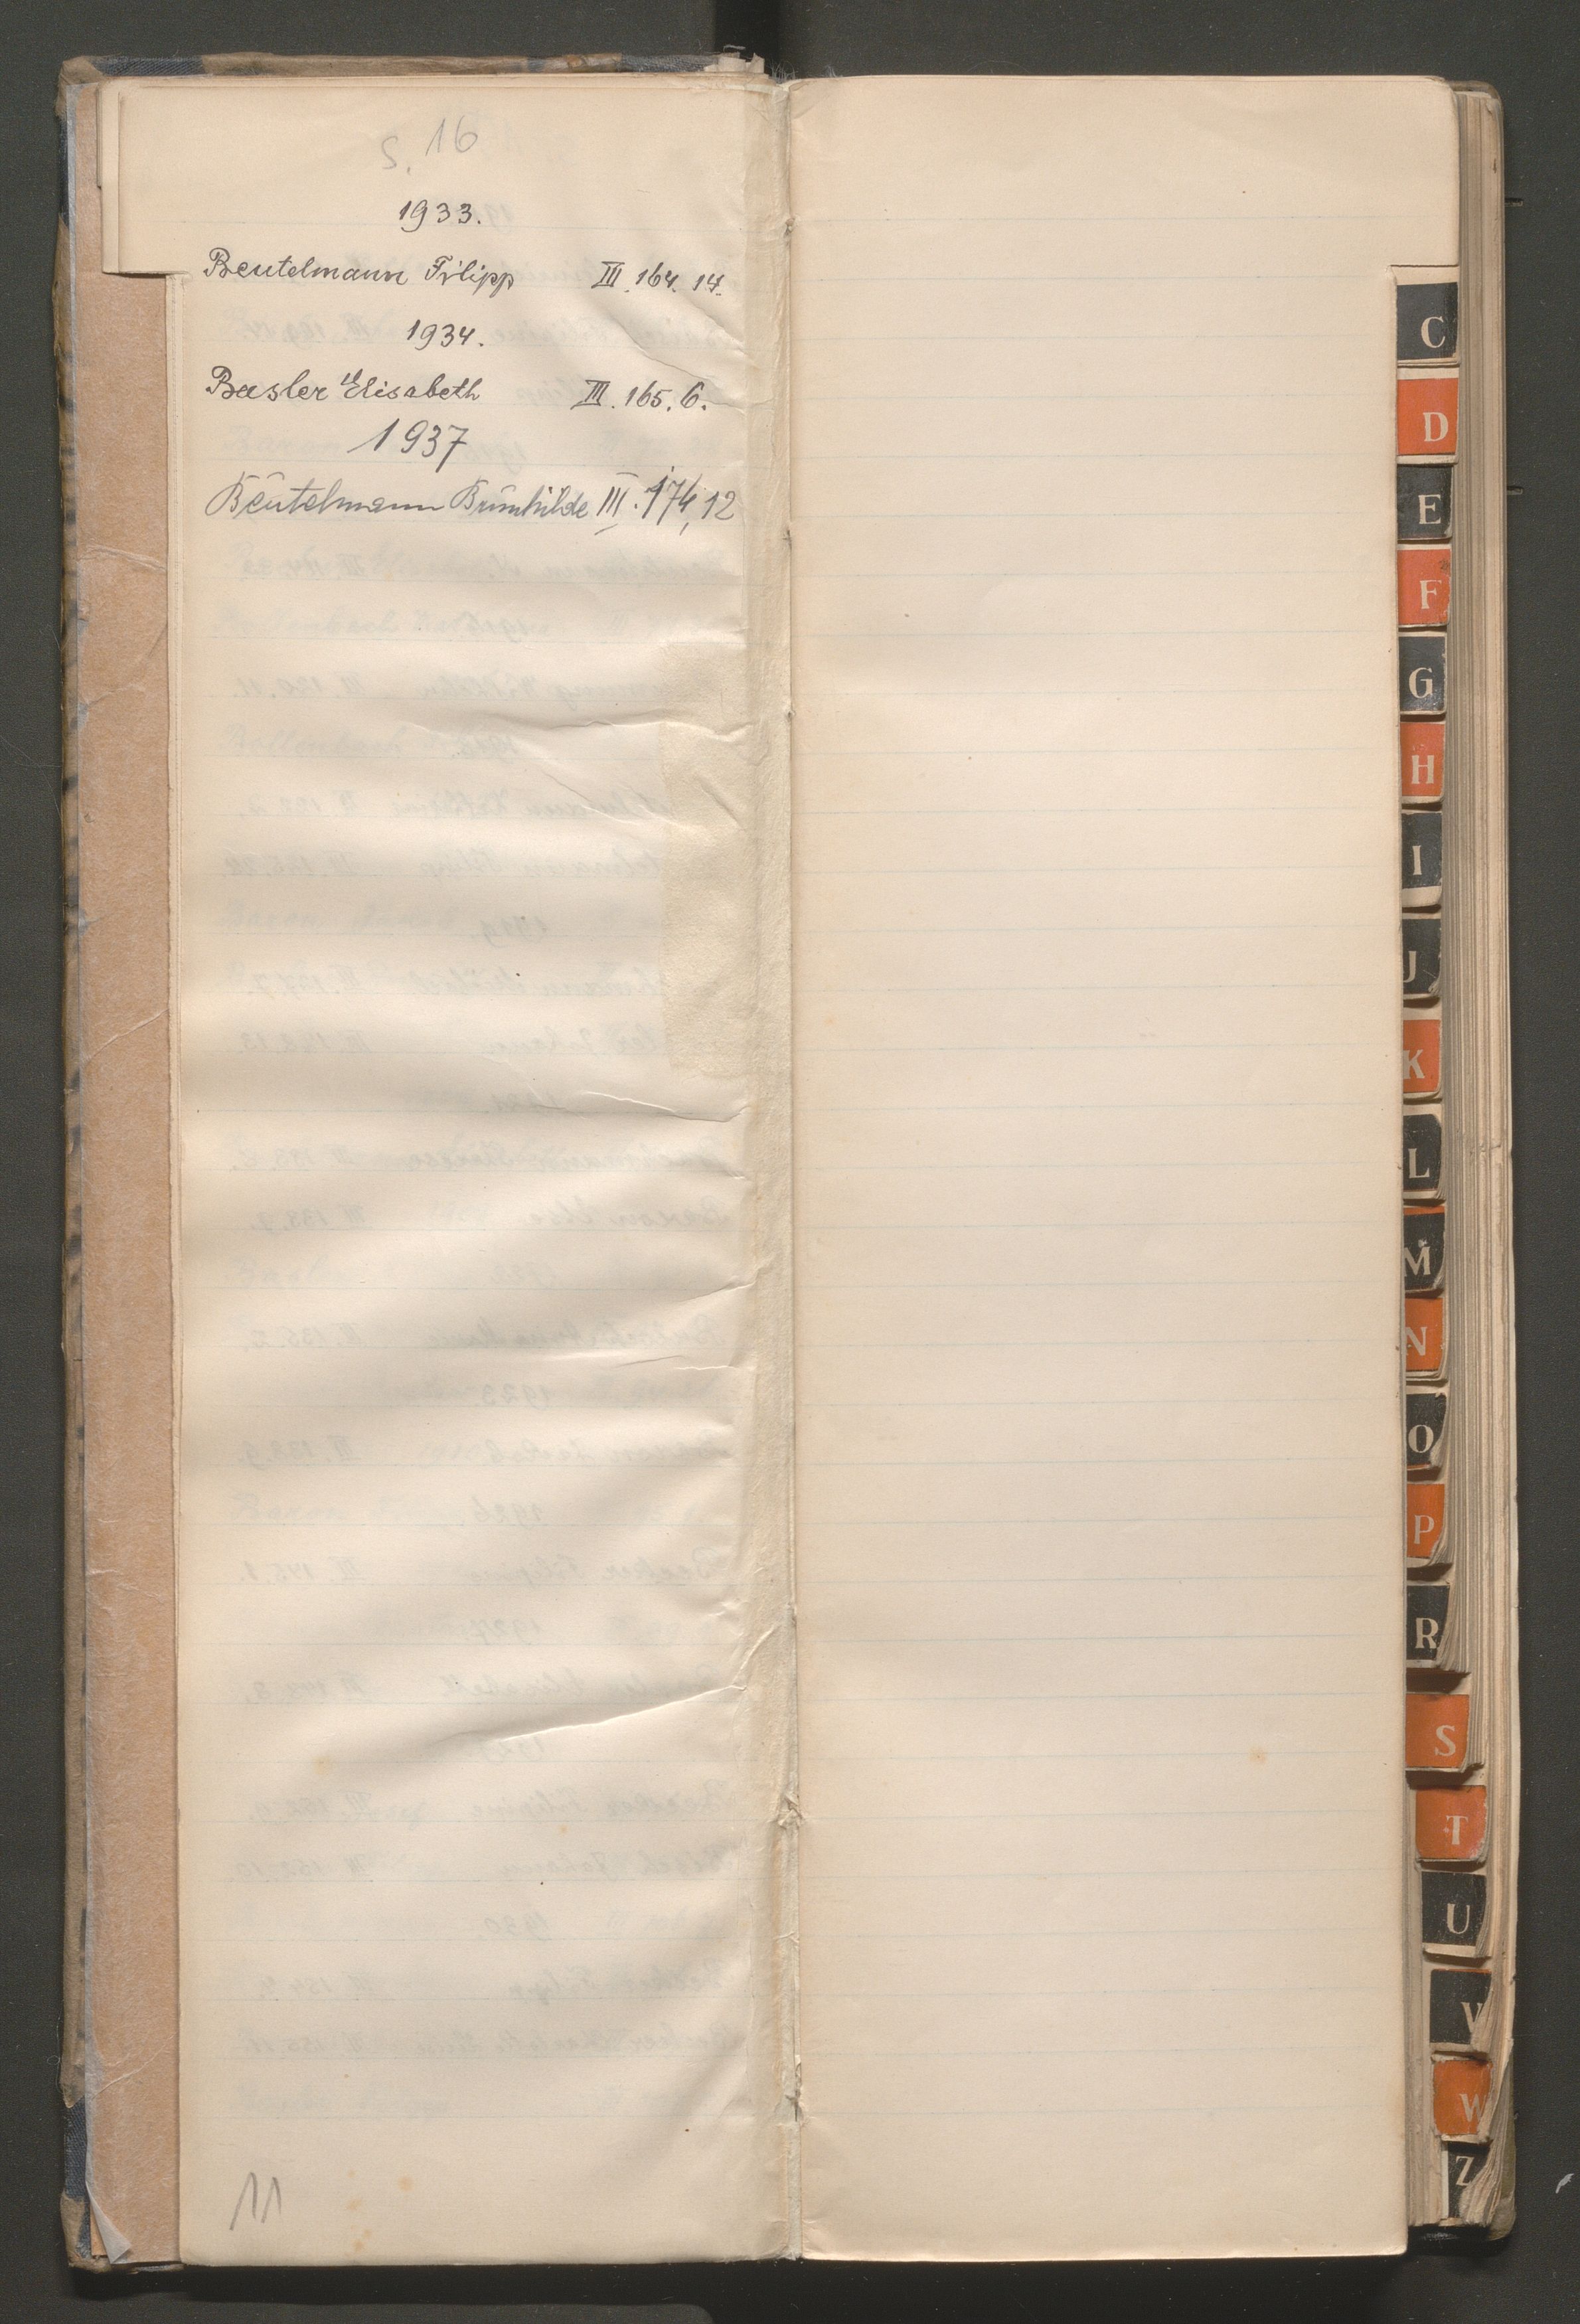 S. 16
1933.
Beutelmann Filipp III. 164. 14.
1934.
Basler Elisabeth III. 165. 6.
1937
Beutelmann Brünhilde III. 174, 12
11
C
D
E
F
G
H
I
J
K
L
M
N
O
P
R
S
T
U
V
W
Z